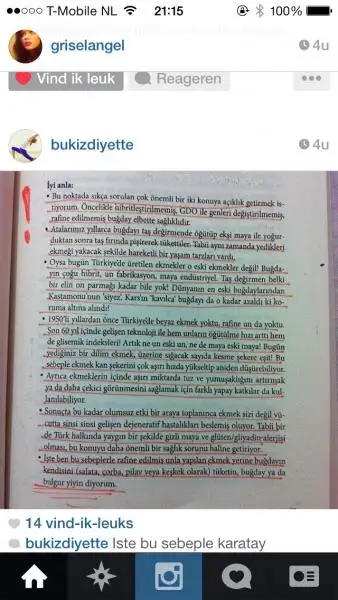 T-Mobile NL 21:15 100%
griselangel 4u
Vind ik leuk Reageren
bukizdiyette 4u
İyi anla:
• Bu noktada sıkça sorulan çok önemli bir iki konuya açıklık getirmek is-
tiyorum. Öncelikle hibritleştirilmemiş, GDO ile genleri değiştirilmemiş,
rafine edilmemiş buğday elbette sağlıklıdır.
• Atalarımız yıllarca buğdayı taş değirmende öğütüp ekşi maya ile yoğur-
duktan sonra taş fırında pişirerek tükettiler. Tabii aynı zamanda yedikleri
ekmeği yakacak şekilde hareketli bir yaşam tarzları vardı.
• Oysa bugün Türkiye'de üretilen ekmekler o eski ekmekler değil! Buğda-
yın çoğu hibrit, un fabrikasyon, maya endüstriyel. Taş değirmen belki
bir elin on parmağı kadar bile yok! Dünyanın en eski buğdaylarından
Kastamonu'nun 'siyez', Kars'ın 'kavılca' buğdayı da o kadar azaldı ki ko-
ruma altına alındı!
• 1950'li yıllardan önce Türkiye'de beyaz ekmek yoktu, rafine un da yoktu.
Son 60 yıl içinde gelişen teknoloji ile hem unların öğütülme hızı arttı hem
de glisemik indeksleri! Artık ne un eski un, ne de maya eski maya! Bugün
yediğiniz bir dilim ekmek, üzerine sığacak sayıda kesme şekere eşit! Bu
sebeple ekmek kan şekerini çok aşırı hızda yükseltip aniden düşürebiliyor.
• Ayrıca ekmeklerin içinde aşırı miktarda tuz ve yumuşaklığını artırmak
ya da daha çekici görünmesini sağlamak için farklı yapay katkılar da kul-
lanılabiliyor.
• Sonuçta bu kadar olumsuz etki bir araya toplanınca ekmek sizi değil vü-
cutta sinsi sinsi gelişen dejeneratif hastalıkları beslemiş oluyor. Tabii bir
de Türk halkında yaygın bir şekilde gizli maya ve glüten/gliyadin alerjisi
olması, bu konuyu daha önemli bir sağlık sorunu haline getiriyor.
• İşte ben bu sebeplerle rafine edilmiş unla yapılan ekmek yerine buğdayın
kendisini (salata, çorba, pilav veya keşkek olarak) tüketin, buğday ya da
bulgur yiyin diyorum.
14 vind-ik-leuks
bukizdiyette Iste bu sebeple karatay